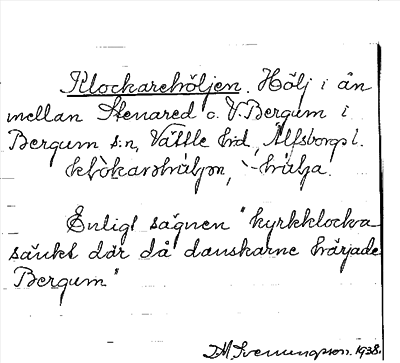 Klockarehöljen. Hölj i ån
mellan Stenared o. V. Bergum i
Bergum s:n, Vättle hd, Älfsborgs l.
Enligt sägnen "kyrkklocka
sänkt där då danskarne härjade
Bergum"
1938.